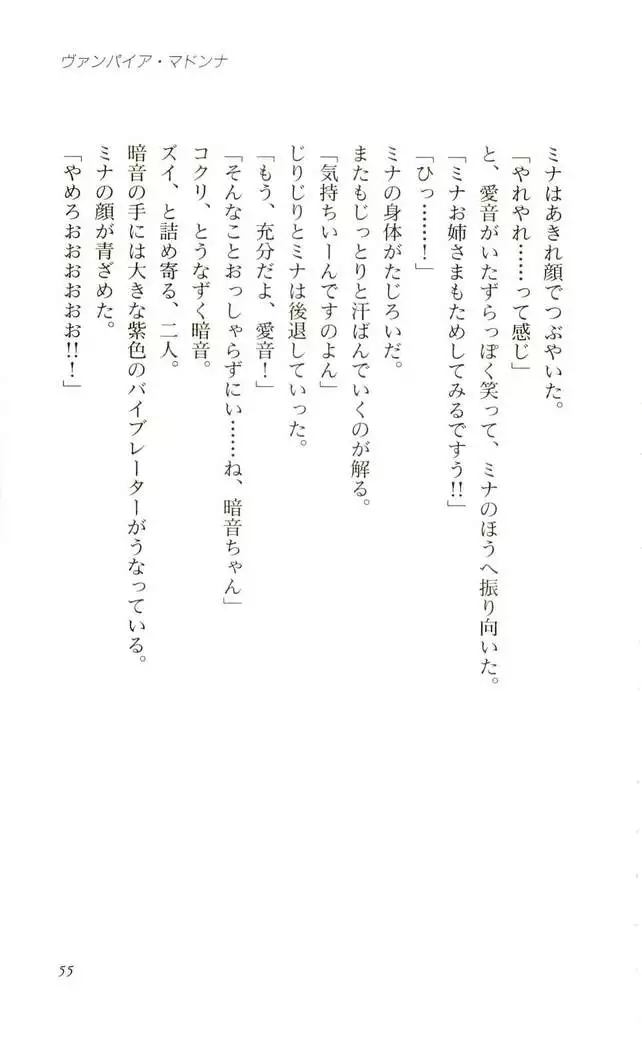 ヴァンパイア・マドンナ
ミナはあきれ顔でつぶやいた。
「やれやれ……って感じ」
と、愛音がいたずらっぽく笑って、ミナのほうへ振り向いた。
「ミナお姉さまもためしてみるですぅ!!」
「ひっ……!」
ミナの身体がたじろいだ。
またもじっとりと汗ばんでいくのが解る。
「気持ちいーんですのよん」
じりじりとミナは後退していった。
「もう、充分だよ、愛音!」
「そんなことおっしゃらずにい……ね、暗音ちゃん」
コクリ、とうなずく暗音。
ズイ、と詰め寄る、二人。
暗音の手には大きな紫色のバイブレーターがうなっている。
ミナの顔が青ざめた。
「やめろおおおおおお!!!」
55